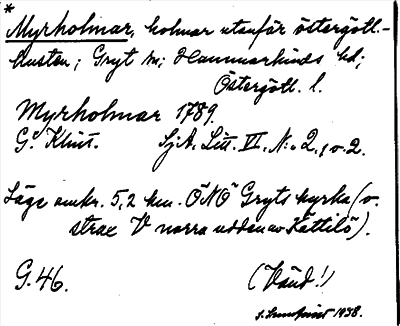 *
Myrholmar, holmar utanför östergötl.-
kusten; Gryt sn; Hammarkinds hd;
Östergötl. l.
Myrholmar 1789.
G. Klint. SjA. Litt. VI. N:o 2, 1 o. 2.
Läge omkr. 5,2 km. ÖNÖ Gryts kyrka (o.
strax V norra udden av Kättilö).
G. 46. (Vänd!)
1938.